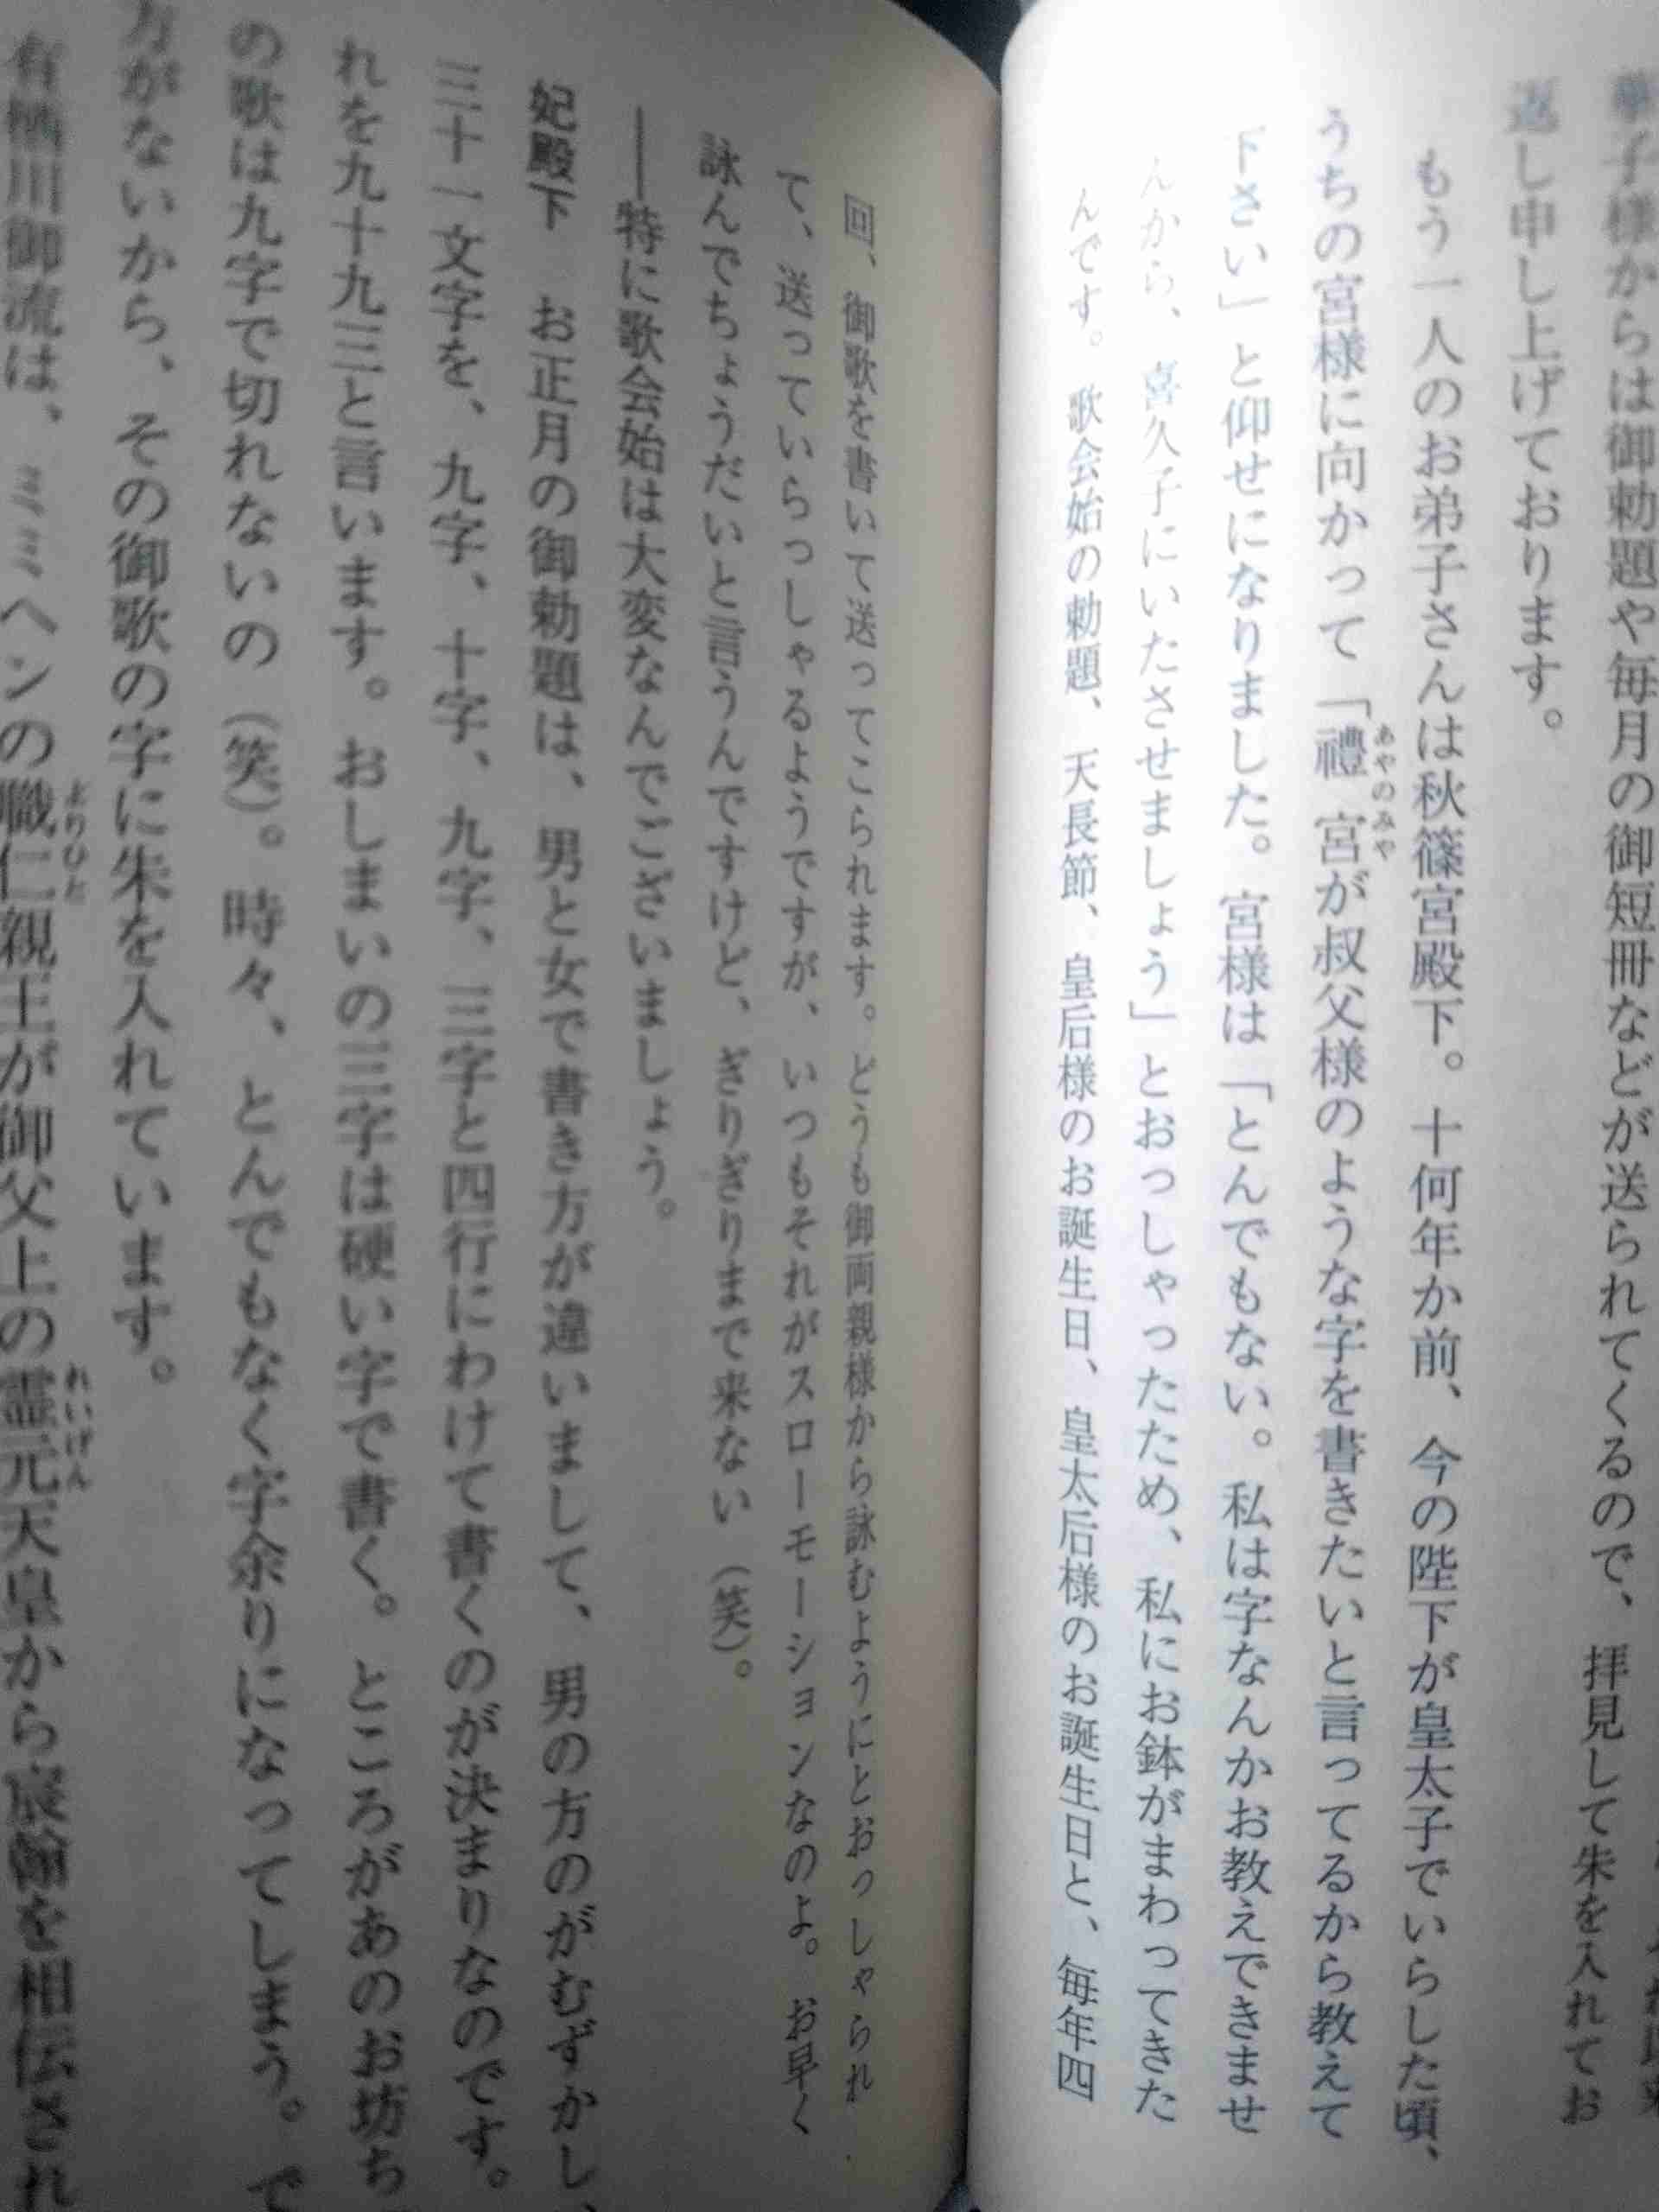 華子様からは御勅題や毎月の御短冊などが送られてくるので、拝見して朱を入れてお
返し申し上げております。
もう一人のお弟子さんは秋篠宮殿下。十何年か前、今の陛下が皇太子でいらした頃、
うちの宮様に向かって「禮宮が叔父様のような字を書きたいと言ってるから教えて
あやのみや
下さい」と仰せになりました。宮様は「とんでもない。私は字なんかお教えできませ
んから、喜久子にいたさせましょう」とおっしゃったため、私にお鉢がまわってきた
んです。歌会始の勅題、天長節、皇后様のお誕生日、皇太后様のお誕生日と、毎年四
回、御歌を書いて送ってこられます。どうも御両親様から詠むようにとおっしゃられ
て、送っていらっしゃるようですが、いつもそれがスローモーションなのよ。お早く
詠んでちょうだいと言うんですけど、ぎりぎりまで来ない（笑）。
──特に歌会始は大変なんでございましょう。
妃殿下　お正月の御勅題は、男と女で書き方が違いまして、男の方のがむずかし、
三十一文字を、九字、十字、九字、三字と四行にわけて書くのが決まりなのです。
れを九十九三と言います。おしまいの三字は硬い字で書く。ところがあのお坊ち
の歌は九字で切れないの（笑）。時々、とんでもなく字余りになってしまう。で
方がないから、その御歌の字に朱を入れています。
有栖川御流は、ミミヘンの職仁親王が御父上の霊元天皇から宸翰を相伝され
よりひと
れいげん